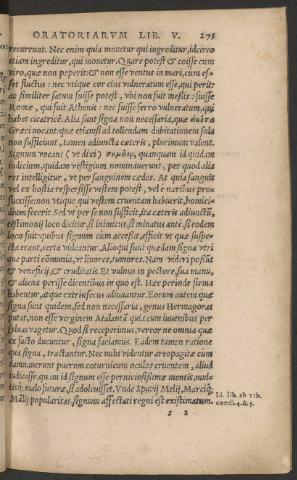 ORATORIARVM LIB. V. 275
recurrunt. Nec enim quia mouetur qui ingreditur, idcirco
etiam ingreditur, qui mouetur. Quare potest & coisse cum
viro, quæ non peperit: & non esse ventus in mari, cum es-
set fluctus: nec vtique cor eius vulneratum esse, qui perit
ac similiter satum fuisse potest, vbi non fuit messis: fuisse
Romæ, qui fuit Athenis: nec fuisse ferro vulneratum, qui
habet cicatricê. Alia sunt signa non necessaria, quæ
Græci vocant: quæ etiamsi ad tollendam dubitationem sola
non sufficiunt, tamen adiuncta cæteris, plurimum valent.
Signum vocant (vt dixi) σημεῖον, quanquam id quidam
indicium, quidam vestigium nominauerunt, per quod alia
res intelligitur, vt per sanguinem cædes. At quia sanguis
vel ex hostia respersisse vestem potest, vel è naribus pro-
fluxisse: non vtique qui vestem cruentam habuerit, homici-
dium fecerit. Sed vt per se non sufficit, ita cæteris adiunctū,
testimonij loco ducitur, si inimicus, si minatus ante, si eodem
loco fuit: quibus signum cùm accessit, efficit vt quæ suspe-
cta erant, certa videantur. Alioqui sunt quædam signa vtri
que parti cōmunia, vt liuores, tumores. Nam videri possūt
& veneficij, & cruditatis. Et vulnus in pectore, sua manu,
& aliena perisse dicentibus in quo est. Hæc perinde firma
habentur, atque extrinsecus adiuuantur. Eorum autem quæ
signa sunt quidem, sed non necessaria, genus Hermagoras
putat, non esse virginem Atalantā quia cum iuuenibus per
syluas vagetur. Quod si receperimus, vereor ne omnia quæ
ex facto ducuntur, signa faciamus. Eadem tamen ratione
qua signa, tractantur. Nec mihi videntur areopagitæ cùm
damnauerunt puerum coturnicum oculos eruentem, aliud
iudicasse, quàm id signum esse perniciosissimæ mentis, mul-
tisq; malo futuræ, si adoleuisset. Vnde Spurij Melij, Marciq;
Mālij popularitas, signum affectati regni est existimatum.
Li. lib. ab vrb.
condi. 4. & 5.
s 2